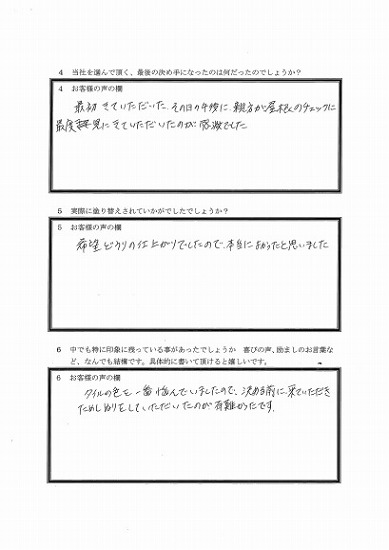 4 当社を選んで頂く、最後の決め手になったのは何だったのでしょうか？
4 お客様の声の欄
最初きていただいた、その日の午後に、親方が屋根のチェックに
最度 見にきていただいたのが、感激でした
5 実際に塗り替えされていかがでしたでしょうか？
5 お客様の声の欄
希望どうりの仕上がりでしたので、本当によかったと思いました
6 中でも特に印象に残っている事があったでしょうか 喜びの声、励ましのお言葉な
ど、なんでも結構です。具体的に書いて頂けると嬉しいです。
6 お客様の声の欄
タイルの色を一番悩んでいましたので、決める前に、来ていただき
ためしぬりをしていただいたのが有難かったです。